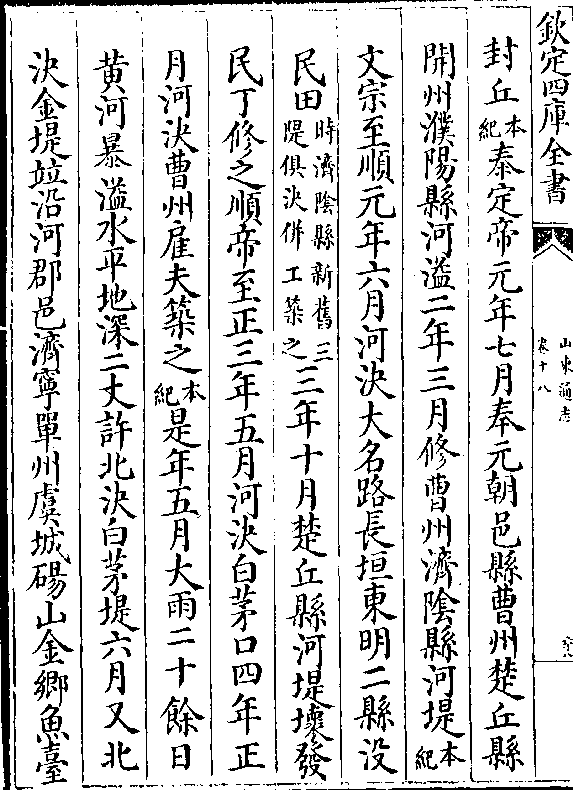 欽定四庫全書
山東通志
卷十八
封丘本紀泰定帝元年七月奉元朝邑縣曹州楚丘縣
開州濮陽縣河溢二年三月修曹州濟隂縣河堤本紀
文宗至順元年六月河決大名路長垣東明二縣没
民田時濟隂縣新舊三隄俱決併工築之三年十月楚丘縣河堤壞發
民丁修之順帝至正三年五月河決白茅口四年正
月河決曹州雇夫築之本紀是年五月大雨二十餘日
黄河暴溢水平地深二丈許北決白茅堤六月又北
決金堤竝沿河郡邑濟寧單州虞城碭山金鄉魚臺